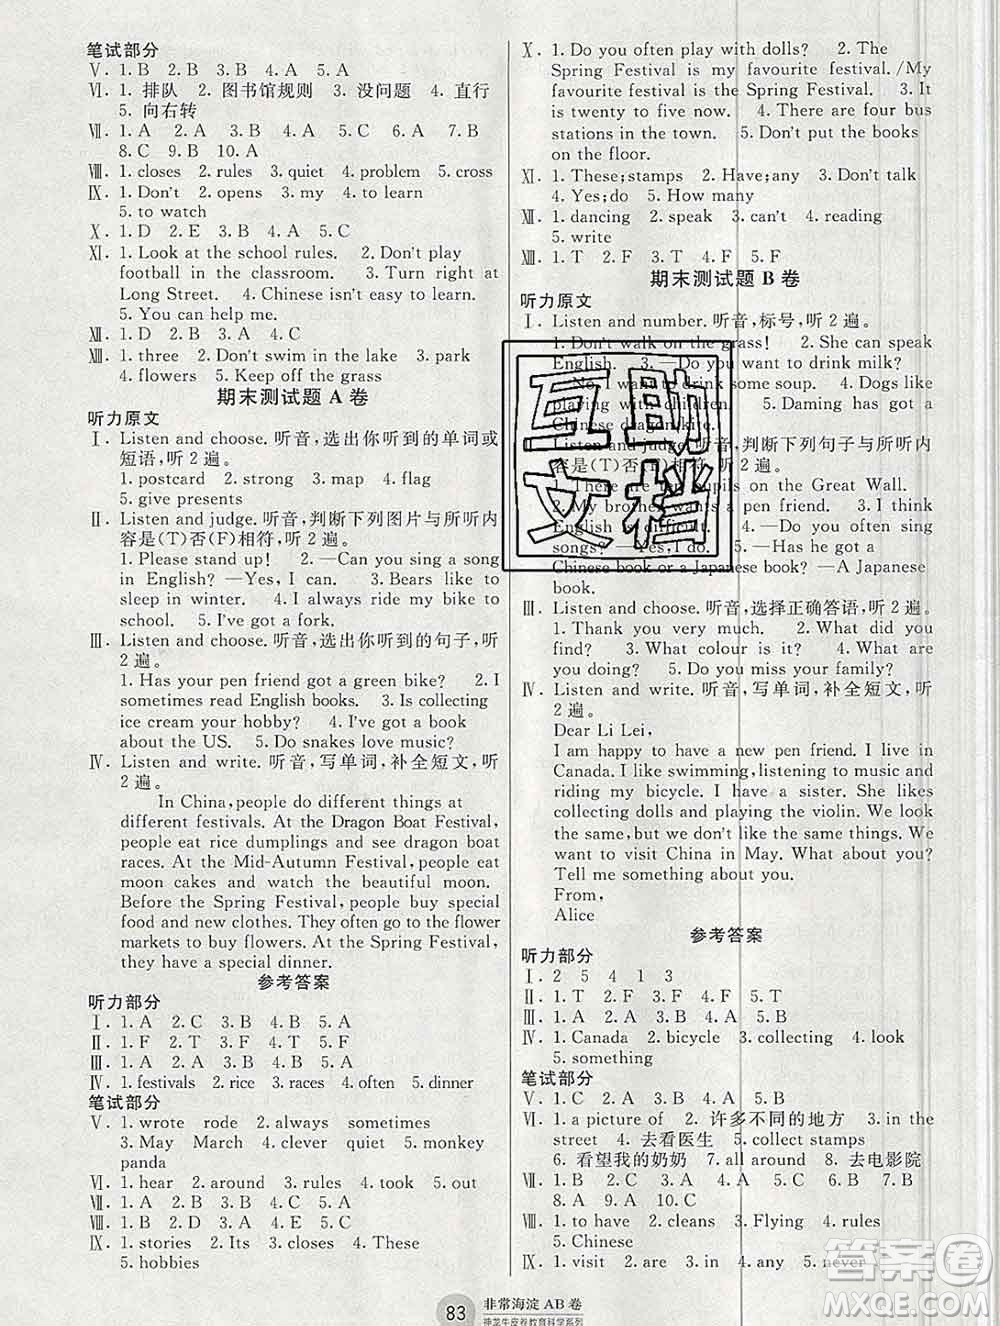 笔试部分
Ⅴ. 1. B 2. B 3. B 4. A 5. A
Ⅵ. 1. 排队 2. 图书馆规则 3. 没问题 4. 直行
5. 向右转
Ⅶ. 1. A 2. A 3. B 4. A 5. A 6. A 7. B
8. C 9. B 10. A
Ⅷ. 1. closes 2. rules 3. quiet 4. problem 5. cross
Ⅸ. 1. Don't 2. opens 3. my 4. to learn
5. to watch
Ⅹ. 1. D 2. E 3. B 4. A 5. C
Ⅺ. 1. Look at the school rules. 2. Don't play
football in the classroom. 3. Turn right at
Long Street. 4. Chinese isn't easy to learn.
5. You can help me.
Ⅻ. 1. D 2. B 3. A 4. C
ⅩⅢ. 1. three 2. Don't swim in the lake 3. park
4. flowers 5. Keep off the grass
期末测试题 A 卷
听力原文
Ⅰ. Listen and choose. 听音,选出你听到的单词或
短语,听 2 遍。
1. postcard 2. strong 3. map 4. flag
5. give presents
Ⅱ. Listen and judge. 听音,判断下列图片与所听内
容是(T)否(F)相符,听 2 遍。
1. Please stand up! 2. —Can you sing a song
in English? —Yes, I can. 3. Bears like to
sleep in winter. 4. I always ride my bike to
school. 5. I've got a fork.
Ⅲ. Listen and choose. 听音,选出你听到的句子,听
2 遍。
1. Has your pen friend got a green bike? 2. I
sometimes read English books. 3. Is collecting
ice cream your hobby? 4. I've got a book
about the US. 5. Do snakes love music?
Ⅳ. Listen and write. 听音,写单词,补全短文,听
2 遍。
In China, people do different things at
different festivals. At the Dragon Boat Festival,
people eat rice dumplings and see dragon boat
races. At the Mid-Autumn Festival, people eat
moon cakes and watch the beautiful moon.
Before the Spring Festival, people buy special
food and new clothes. They often go to the flower
markets to buy flowers. At the Spring Festival,
they have a special dinner.
参考答案
听力部分
Ⅰ. 1. A 2. C 3. B 4. B 5. A
Ⅱ. 1. F 2. T 3. T 4. T 5. F
Ⅲ. 1. A 2. A 3. B 4. B 5. A
Ⅳ. 1. festivals 2. rice 3. races 4. often 5. dinner
笔试部分
Ⅴ. 1. wrote rode 2. always sometimes
3. May March 4. clever quiet 5. monkey
panda
Ⅵ. 1. hear 2. around 3. rules 4. took 5. out
Ⅶ. 1. A 2. B 3. B 4. A 5. A
Ⅷ. 1. B 2. D 3. A 4. E 5. C
Ⅸ. 1. stories 2. Its 3. closes 4. These
5. hobbies
Ⅹ. 1. Do you often play with dolls? 2. The
Spring Festival is my favourite festival. /My
favourite festival is the Spring Festival. 3. It
is twenty to five now. 4. There are four bus
stations in the town. 5. Don't put the books
on the floor.
Ⅺ. 1. These; stamps 2. Have; any 3. Don't talk
4. Yes; do 5. How many
Ⅻ. 1. dancing 2. speak 3. can't 4. reading
5. write
ⅩⅢ. 1. T 2. F 3. T 4. F 5. F
期末测试题 B 卷
听力原文
Ⅰ. Listen and number. 听音,标号,听 2 遍。
1. Don't walk on the grass! 2. She can speak
English. 3. —Do you want to drink milk?
—No, I want to drink some soup. 4. Dogs like
playing with children. 5. Daming has got a
Chinese dragon kite.
Listen and judge. 听音,判断下列句子与所听内
容是(T)否(F)相符,听 2 遍。
1. There are ten pupils on the Great Wall.
2. My brother wants a pen friend. 3. I think
English is difficult. 4. —Do you often sing
songs? —Yes, I do. 5. —Has he got a
Chinese book or a Japanese book? —A Japanese
book.
Ⅲ. Listen and choose. 听音,选择正确答语,听 2 遍。
1. Thank you very much. 2. What did you
find? 3. What colour is it? 4. What are
you doing? 5. Do you miss your family?
Ⅳ. Listen and write. 听音,写单词,补全短文,听
2 遍。
Dear Li Lei,
I am happy to have a new pen friend. I live in
Canada. I like swimming, listening to music and
riding my bicycle. I have a sister. She likes
collecting dolls and playing the violin. We look
the same, but we don't like the same things. We
want to visit China in May. What about you?
Tell me something about you.
From,
Alice
参考答案
听力部分
Ⅰ. 2 5 4 1 3
Ⅱ. 1. T 2. F 3. F 4. F 5. T
Ⅲ. 1. A 2. A 3. B 4. A 5. B
Ⅳ. 1. Canada 2. bicycle 3. collecting 4. look
5. something
笔试部分
Ⅴ. 1. C 2. A 3. A 4. A 5. B
Ⅵ. 1. a picture of 2. 许多不同的地方 3. in the
street 4. 去看医生 5. collect stamps
6. 看望我的奶奶 7. all around 8. 去电影院
Ⅶ. 1. B 2. C 3. B 4. C 5. A 6. C 7. B
8. A 9. A 10. C
Ⅷ. 1. to have 2. cleans 3. Flying 4. rules
5. Chinese
Ⅸ. 1. visit 2. are 3. in 4. any 5. never
互助
文档
答案圈
MXQE.COM
83
非常海淀 AB 卷
神龙牛皮卷教育科学系列